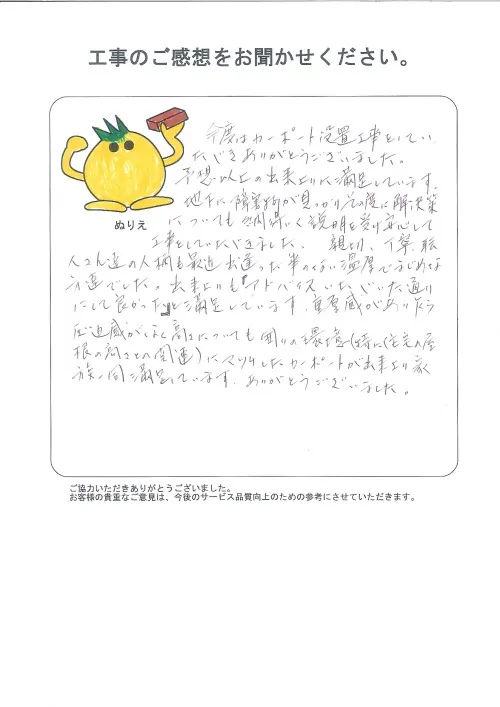 工事のご感想をお聞かせください。
ぬりえ
今度はカーポート設置工事をしてい
ただきありがとうございました。
予想以上の出来上りに満足しています。
地下に障害物が見つかりその度に解決策
についても納得いく説明を受け安心して
工事をしていただきました。親切、丁寧、職
人さん達の人柄も最近出逢った事のない温厚でまじめな
方達でした。出来上りもアドバイスいただいた通り
にして良かったと満足しています。重厚感がありながら
圧迫感がなく高さについても囲りの環境(特に住宅の屋
根の高さとの関連)にマッチしたカーポートが出来上り家
族一同満足しています。ありがとうございました。
ご協力いただきありがとうございました。
お客様の貴重なご意見は、今後のサービス品質向上のための参考にさせていただきます。